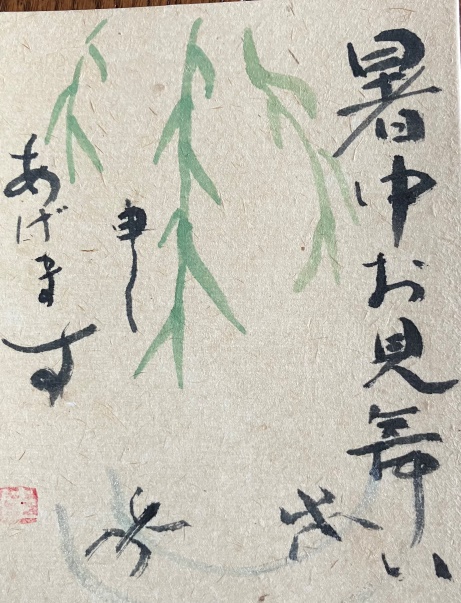 暑中お見舞い
申し
あげます